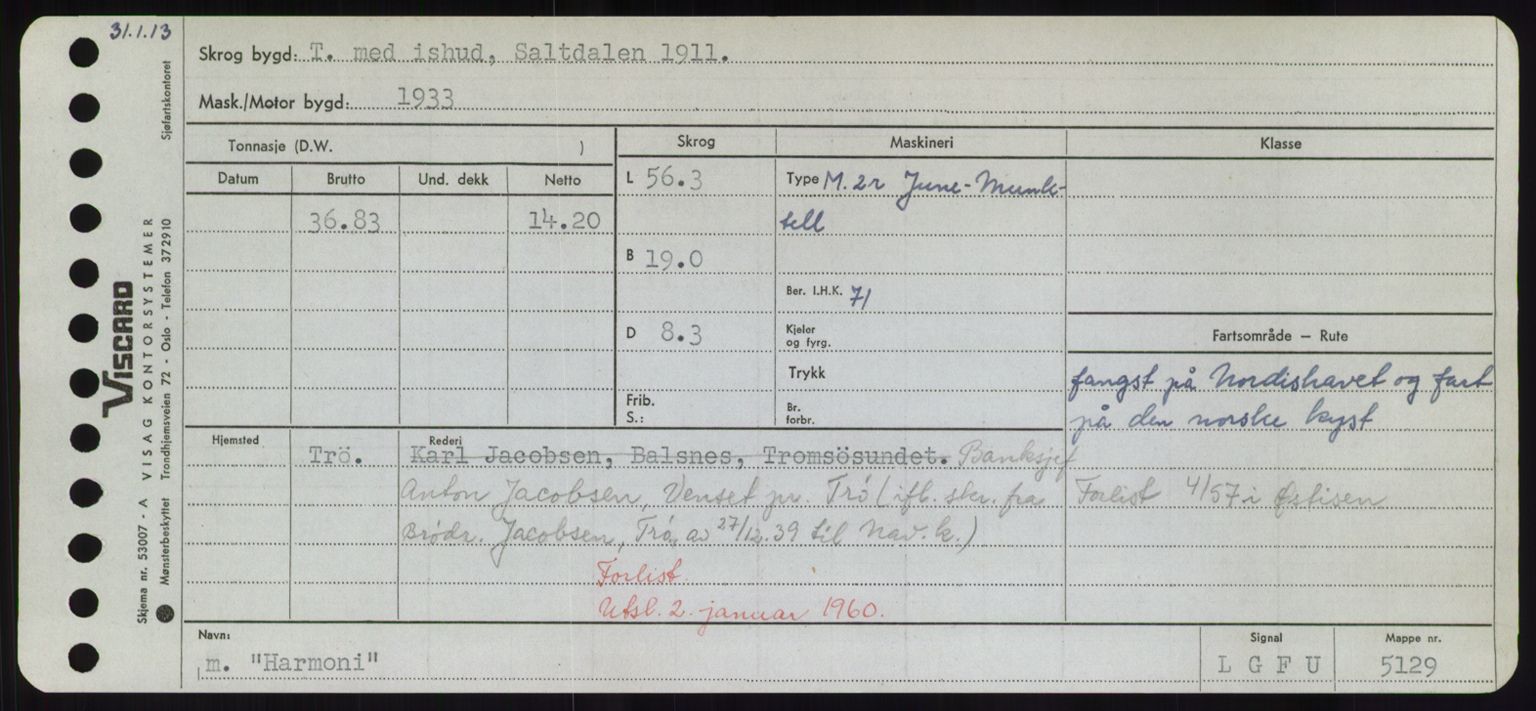 31.1.13
Skrog bygd: T. med ishud, Saltdalen 1911.
Mask./Motor bygd: 1933
Tonnasje (D.W. )
Skrog
Maskineri
Klasse
Datum
Brutto
Und. dekk
Netto
36.83
14.20
L 56.3
B 19.0
D 8.3
Frib.
S.:
Type M. 2r June-Munk-
tell
Ber. I.H.K. 71
Kjeler
og fyrg.
Trykk
Br.
forbr.
Fartsområde – Rute
fangst på Nordishavet og fart
på den norske kyst
Forlist 4/57 i Østisen
Hjemsted
Trö.
Rederi
Karl Jacobsen, Balsnes, Tromsösundet. Banksjef
Anton Jacobsen, Venset pr. Trö (ifl. skr. fra
Brödr. Jacobsen, Trö, av 27/12.39 til Nav.k.)
Forlist.
Utsl. 2. januar 1960.
Navn:
m. "Harmoni"
Signal
L G F U
Mappe nr.
5129
Sjøfartskontoret
VISCARD
VISAG KONTORSYSTEMER
Skjema nr. 53007 - A
Mønsterbeskyttet Trondhjemsveien 72 - Oslo - Telefon 372910